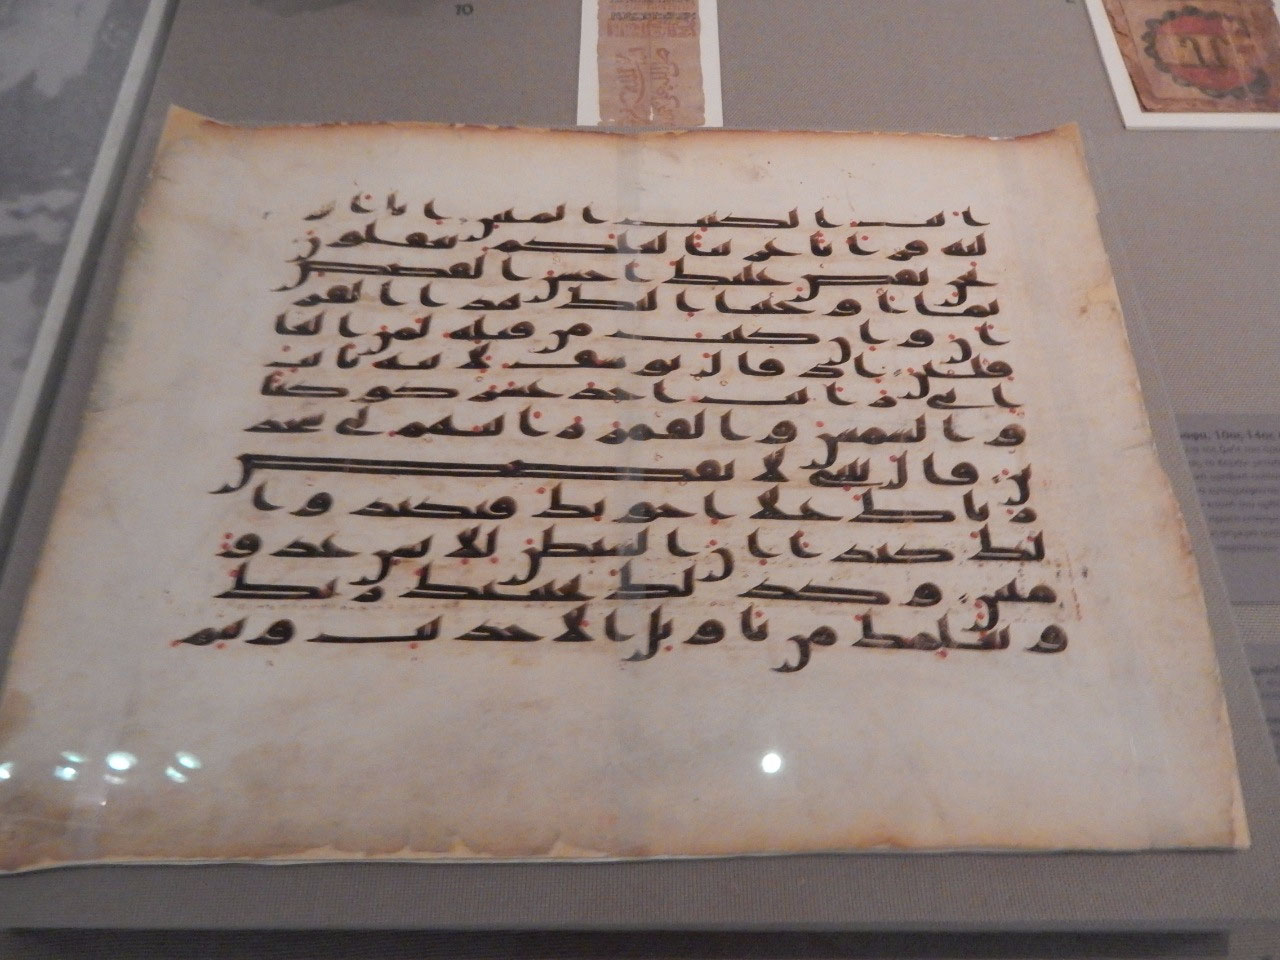 ايت الكتب المبين انا انز
لنه قرنا عربيا لعلكم تعقلون
نحن نقص عليك احسن القصص
بما اوحينا اليك هذا القر
ان وان كنت من قبله لمن الغا
فلين اذ قال يوسف لابيه يابت
اني رايت احد عشر كوكبا
والشمس والقمر رايتهم لي سجد
ين قال يبني لا تقصص
رياك علا اخوتك فيكيدوا
لك كيدا ان الشيطن للانسن عدو
مبين وكذلك يجتبيك ربك
ويعلمك من تاويل الاحديث ويتم
10